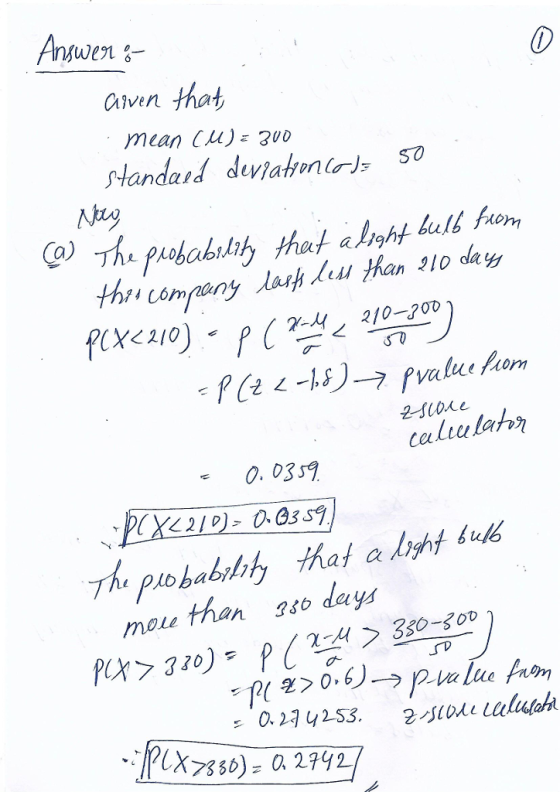 ①
Answer :-
Given that,
mean (μ) = 300
standard deviation (σ) = 50
Now,
(a) The probability that a light bulb from
this company lasts less than 210 days
P(X<210) = P ( x-μ/σ < 210-300/50 )
= P(z < -1.8) → p value from
z-score
calculator
= 0.0359.
∴ P(X<210) = 0.0359.
The probability that a light bulb
more than 330 days
P(X > 330) = P ( x-μ/σ > 330-300/50 )
= P( z > 0.6) → p-value from
= 0.274253. z-score calculator
∴ P(X>330) = 0.2742